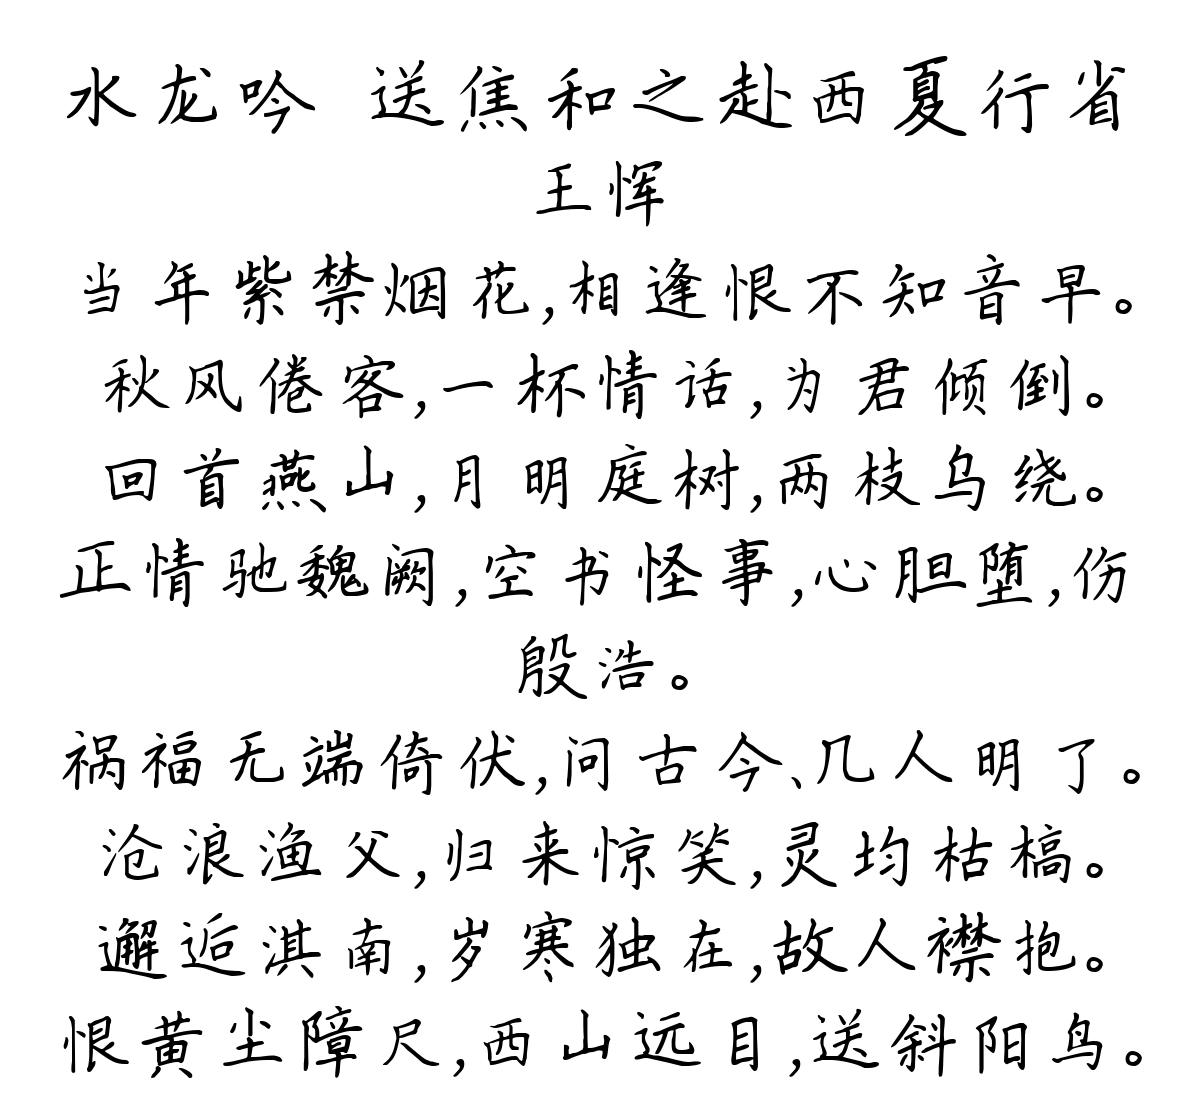 水龙吟 送焦和之赴西夏行省
王恽
当年紫禁烟花,相逢恨不知音早。
秋风倦客,一杯情话,为君倾倒。
回首燕山,月明庭树,两枝乌绕。
正情驰魏阙,空书怪事,心胆堕,伤
殷浩。
祸福无端倚伏,问古今、几人明了。
沧浪渔父,归来惊笑,灵均枯槁。
邂逅淇南,岁寒独在,故人襟抱。
恨黄尘障尺,西山远目,送斜阳鸟。